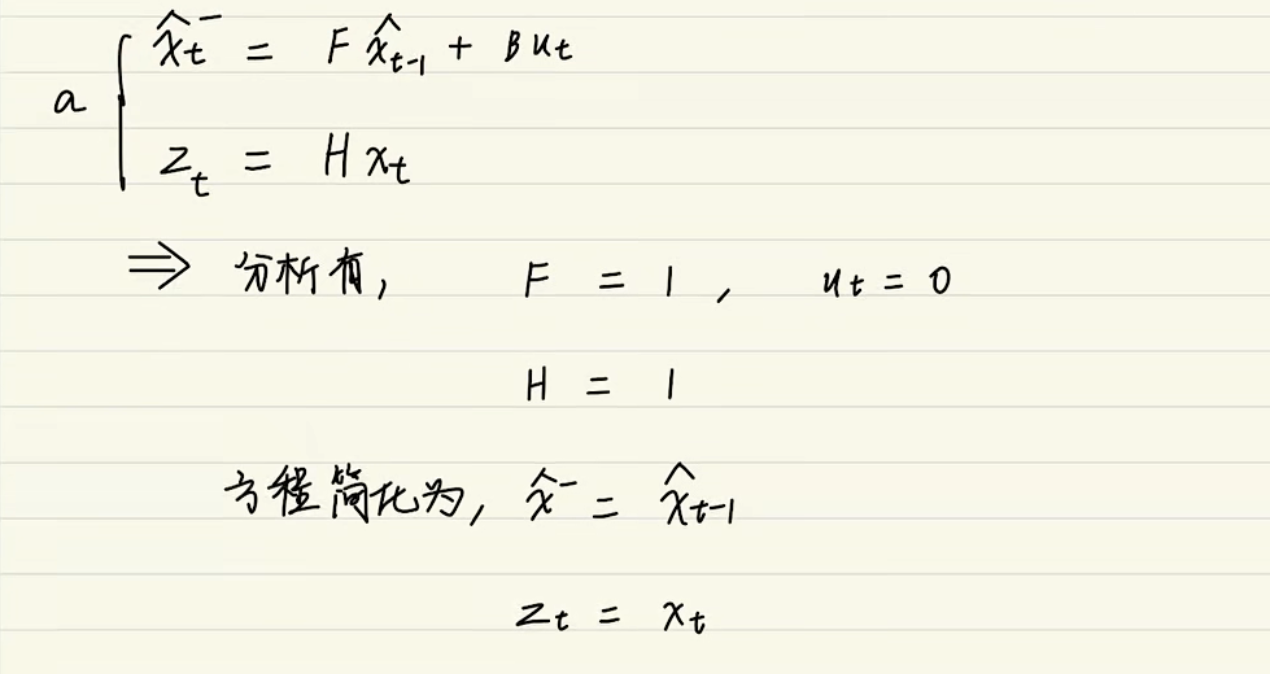 a { x̂t⁻ = F x̂t-1 + But
zt = Hxt
⇒ 分析有, F = 1 , ut = 0
H = 1
方程简化为, x̂⁻ = x̂t-1
zt = xt